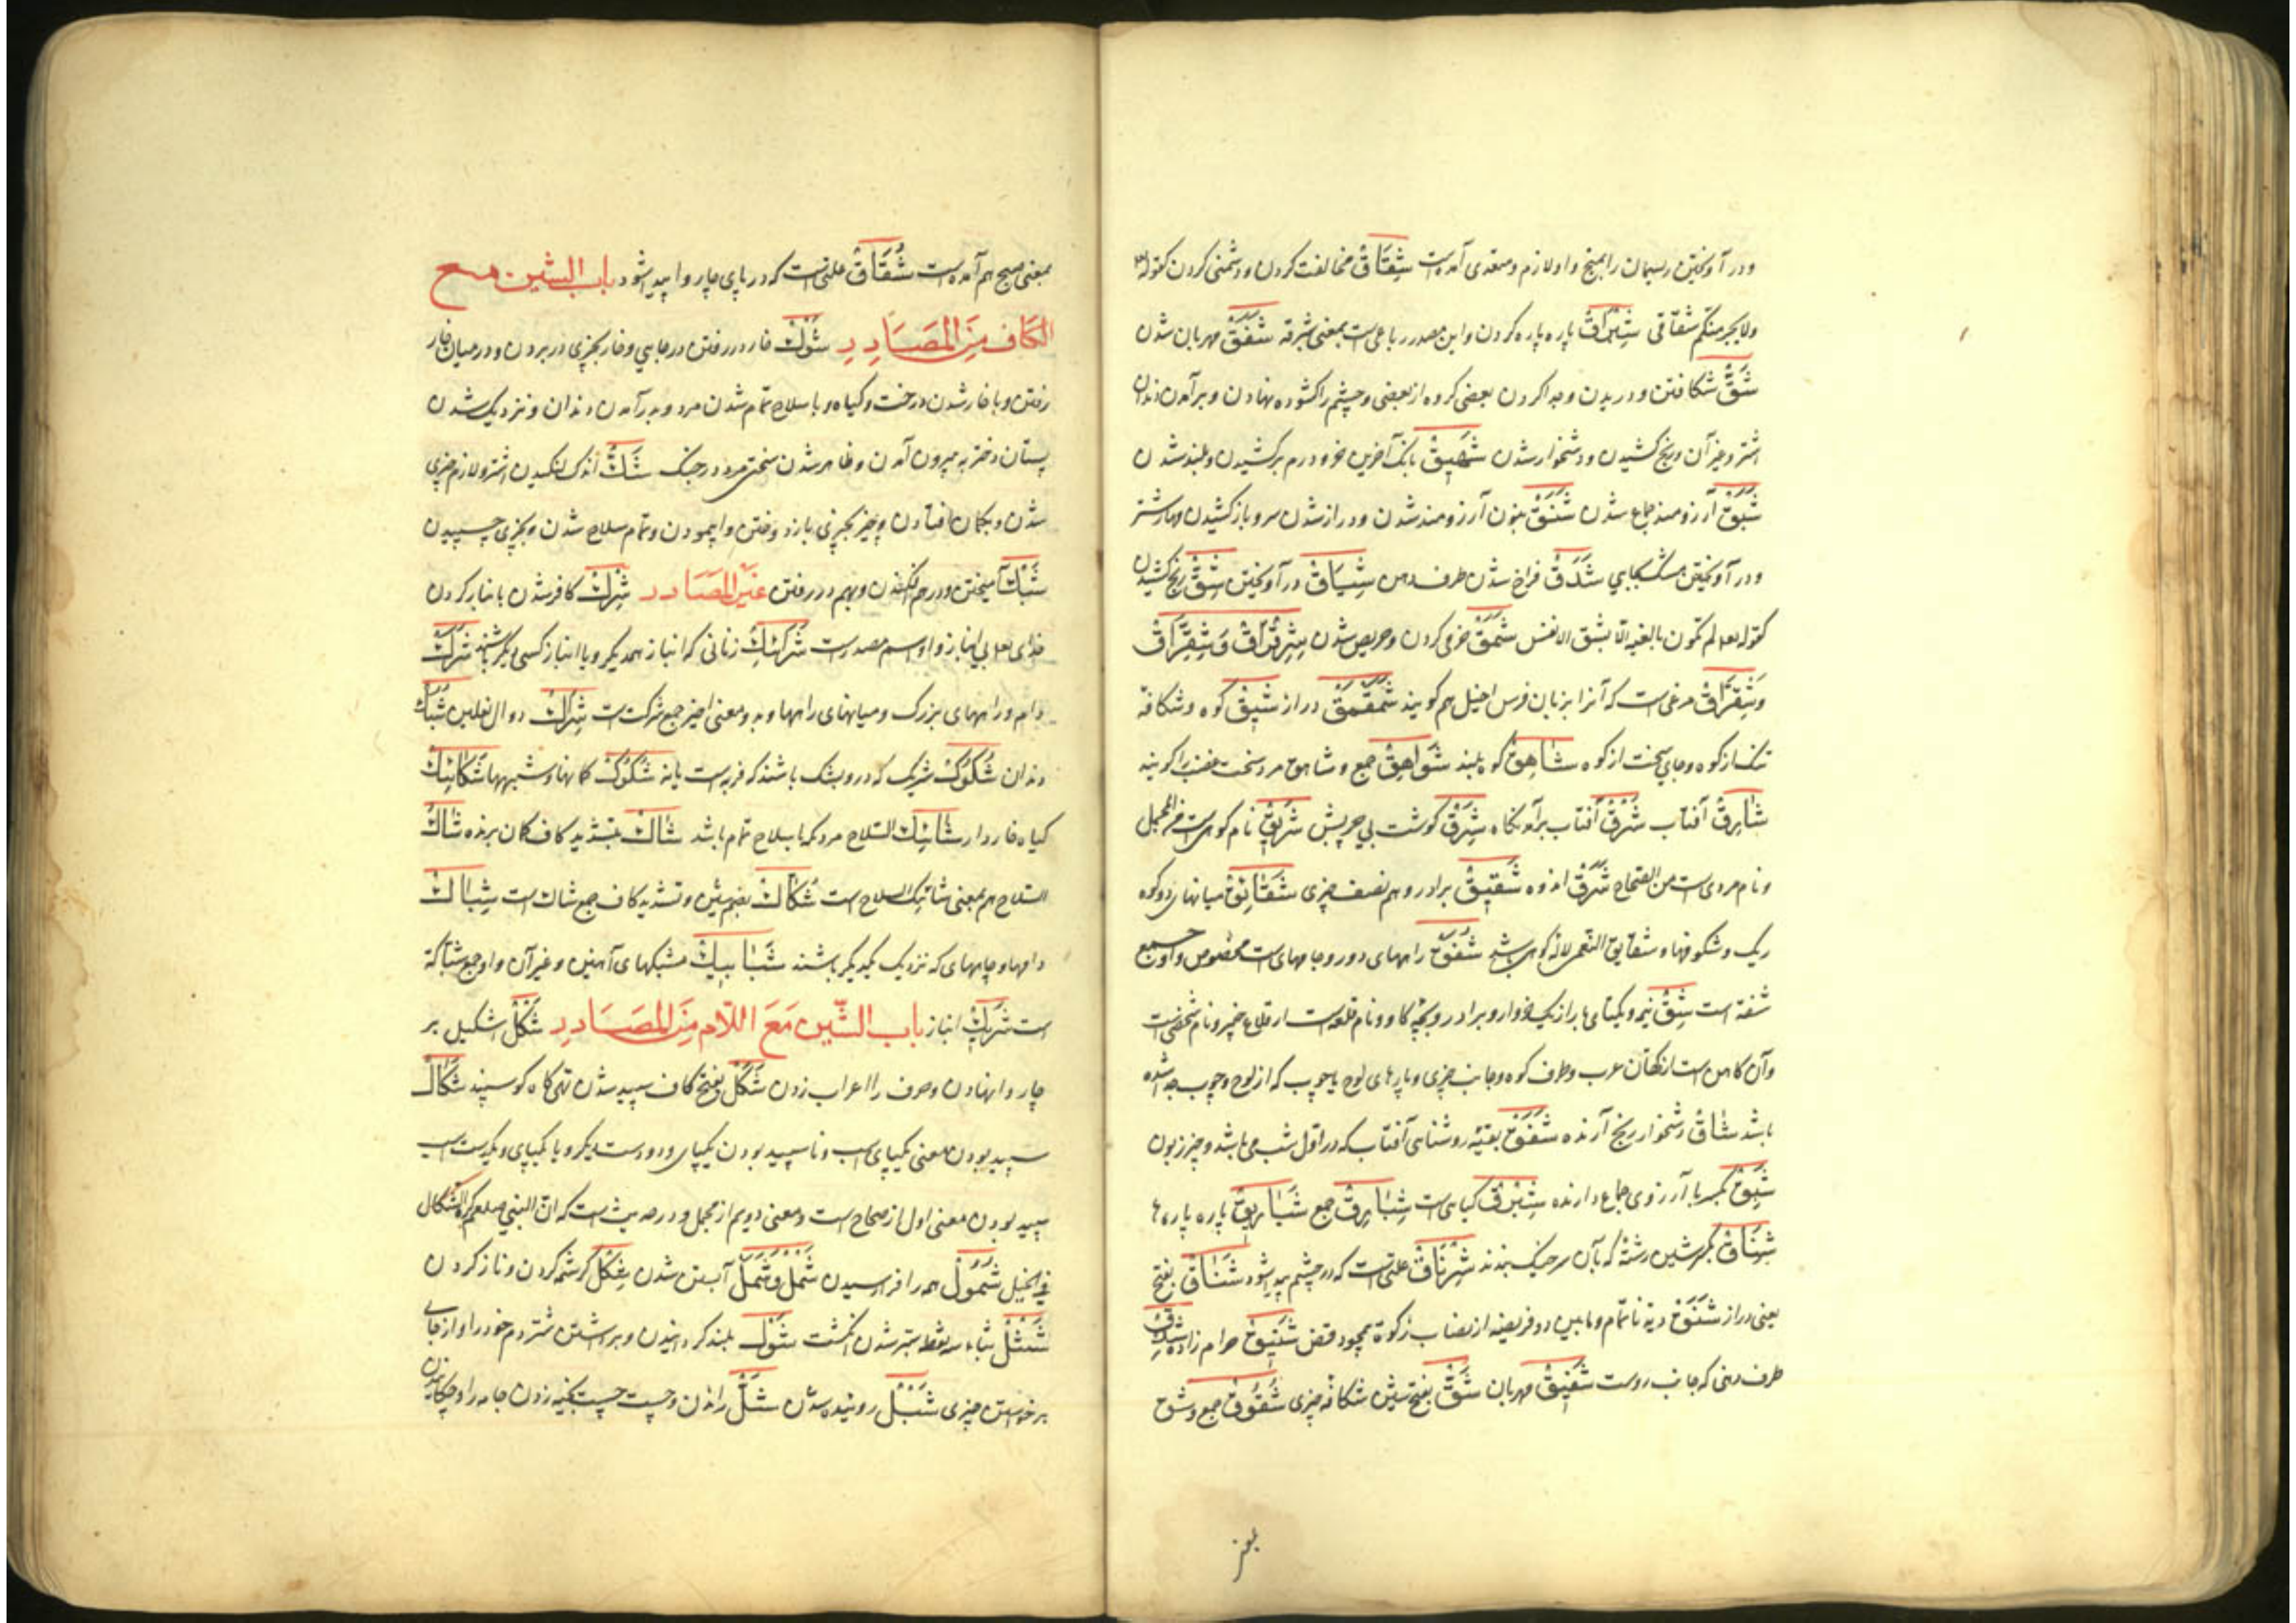 ودر آویختن ریسمان را بمیخ واو لازم ومتعدی آمده است شِقَاقْ مخالفت کردن ودشمنی کردن کقوله
ولا یجرمنکم شقاقی شِبْرَاقْ پاره پاره کردن واین مصدر رباعی است بمعنی شبرقه شَفَقْ مهربان شدن
شَقّْ شکافتن ودریدن وجدا کردن بعضی کروه از بعضی وچشم را کشوده نهادن وبرآمدن دندان
اشتر وغیر آن ورنج کشیدن ودشخوار شدن شَهِیقْ بانک آخرین خر ودرم برکشیدن وبلند شدن
شَبَقْ آرزومند جماع شدن شَنَقْ بنون آرزومند شدن ودراز شدن سر وباز کشیدن مهار شتر
ودر آویختن مشک بجایی شَدَقْ فراخ شدن طرف دهن شِیَاقْ در آویختن شِقّْ رنج کشیدن
کقوله لم تکونوا بالغیه الا بشق الانفس شَمَقْ خرمی کردن وحریص شدن شِرِقْرَاقْ وَشِقِرَّاقْ
وَشِقْرَاقْ مرغی است که آنرا بزبان فرس اخیل هم کویند شَمَقْمَقْ دراز شِیقْ کوه وشکافه
تنک از کوه وجای سخت از کوه شَاهِقْ کوه بلند شَوَاهِقْ جمع وشاهق مرد سخت غضب را کویند
شَارِقْ آفتاب شَرْقْ آفتاب برآمدنکاه شَرَقْ کوشت بی چربش شَرِیقْ نام کوهی است من المجمل
ونام مردی است من الصحاح شَرَقْ اندوه شَقِیقْ برادر وهم نصف چیزی شَقَائِقْ میانهای دو کوه
ریک وشکوفها وشقایق النعمن لاله کوهی باشد شُقَقْ راههای دور وجامهای است مخصوص واو جمع
شقه است شِقّْ نیمه ویکتای بار از یک خروار وبرادر وبچه کاو ونام قلعه است از قلاع خیبر ونام شخصی است
وآن کاهن است از کهان عرب وطرف کوه وجانب چیزی وپارهای لوح یا چوب که از لوح وچوب جدا شده
باشد شَاقّْ دشخوار رنج آرنده شَفَقْ بقیه روشنایی آفتاب که در اول شب می باشد وچیز زبون
شَبِقْ بکسر با آرزوی جماع دارنده شِبْرِقْ کیاهی است شِبَارِقْ جمع شَبَارِیقْ پاره پاره ها
شِنَاقْ بکسر شین رشته که بآن سر خیک بندند شِرْنَاقْ علتی است که در چشم پیدا شود شَنَاقْ بفتح
یعنی دراز شَنَقْ دیه ناتمام ومابین دو فریضه از نصاب زکوة همچو وقص شَنِیقْ حرام زاده شِدْقْ
طرف دهنی که جانب روست شَفِیقْ مهربان شَقّْ بفتح شین شکافه چیزی شُقُوقْ جمع وشق
بمعنی صبح هم آمده است شُقَاقْ علتی است که در پای چاروا پیدا شود باب الشین مع
الکَاف مِنَ المَصَادِرِ شَوْكْ خار در رفتن در جایی وخار بچیزی در بردن ودر میان خار
رفتن وبا خار شدن درخت وکیاه وبا سلاح تمام شدن مرد وبر آمدن دندان ونزدیک شدن
پستان دختر به بیرون آمدن وظاهر شدن سختی مرد در جنک شَكّْ اندک لنکیدن اشتر ولازم چیزی
شدن وبکمان افتادن وچیز بچیزی باز دوختن وا پیمودن وتمام سلاح شدن وبچیزی چسپیدن
شَبْكْ آمیختن ودر هم افکندن وبهم در رفتن غَیرِ المَصَادر شِرْكْ کافر شدن با انباز کردن
خدای تعالی بی انباز واو اسم مصدر است شُرَكَاءْ زنانی که انباز همدیکر ویا انباز کسی دیکر باشند شَرَكْ
دام وراههای بزرک ومیانهای راهها وبدو معنی اخیر جمع شرکت است شِرَاكْ دوال نعلین شَبَكْ
دندان شَكُوكْ شتری که در وی شک باشند که فربه است یا نه شُكُوكْ کمانها وشبهها شَائِكْ
کیاه خاردار شَائِكْ السّلاح مردی که با سلاح تمام باشد شَاكّْ بتشدید کاف کمان برنده شَاكْ
السّلاح هم بمعنی شائک السلاح است شُكَّاكْ بضم شین وتشدید کاف جمع شاک است شِبَاكْ
دامها وچاههای که نزدیک یکدیکر باشند شَبَابِیكْ مشبکهای آهنین وغیر آن واو جمع شباکة
است شَرِیكْ انباز باب الشّین مَعَ اللّام مِنَ المَصَادِرِ شَكْلْ شکیل بر
چاروا نهادن وحرف را اعراب زدن شَكَلْ بفتح کاف سپید شدن تهی کاه کوسپند شِكَالْ
سپید بودن معنی یکپای اسب وناسپید بودن یکپای ودو دست دیکر ویا یکپای ویکدست اسب
سپید بودن معنی اول از صحاح است ومعنی دویم از مجمل ودر حدیث است که ان النبی صلعم کره الشکال
فی الخیل شُمُولْ همه را فرا رسیدن شَمْلْ وَشَمَلْ آبستن شدن شِكْلْ کرشمه کردن وناز کردن
شَثَلْ بثاء سه نقطه ستبر شدن انکشت شَوْلْ بلند کردانیدن وبرداشتن شتر دم خود را واز جای
برخاستن چیزی شَبْلْ روئیده شدن شَلّْ راندن وچست چست بخیه زدن جامه را وچکانیدن